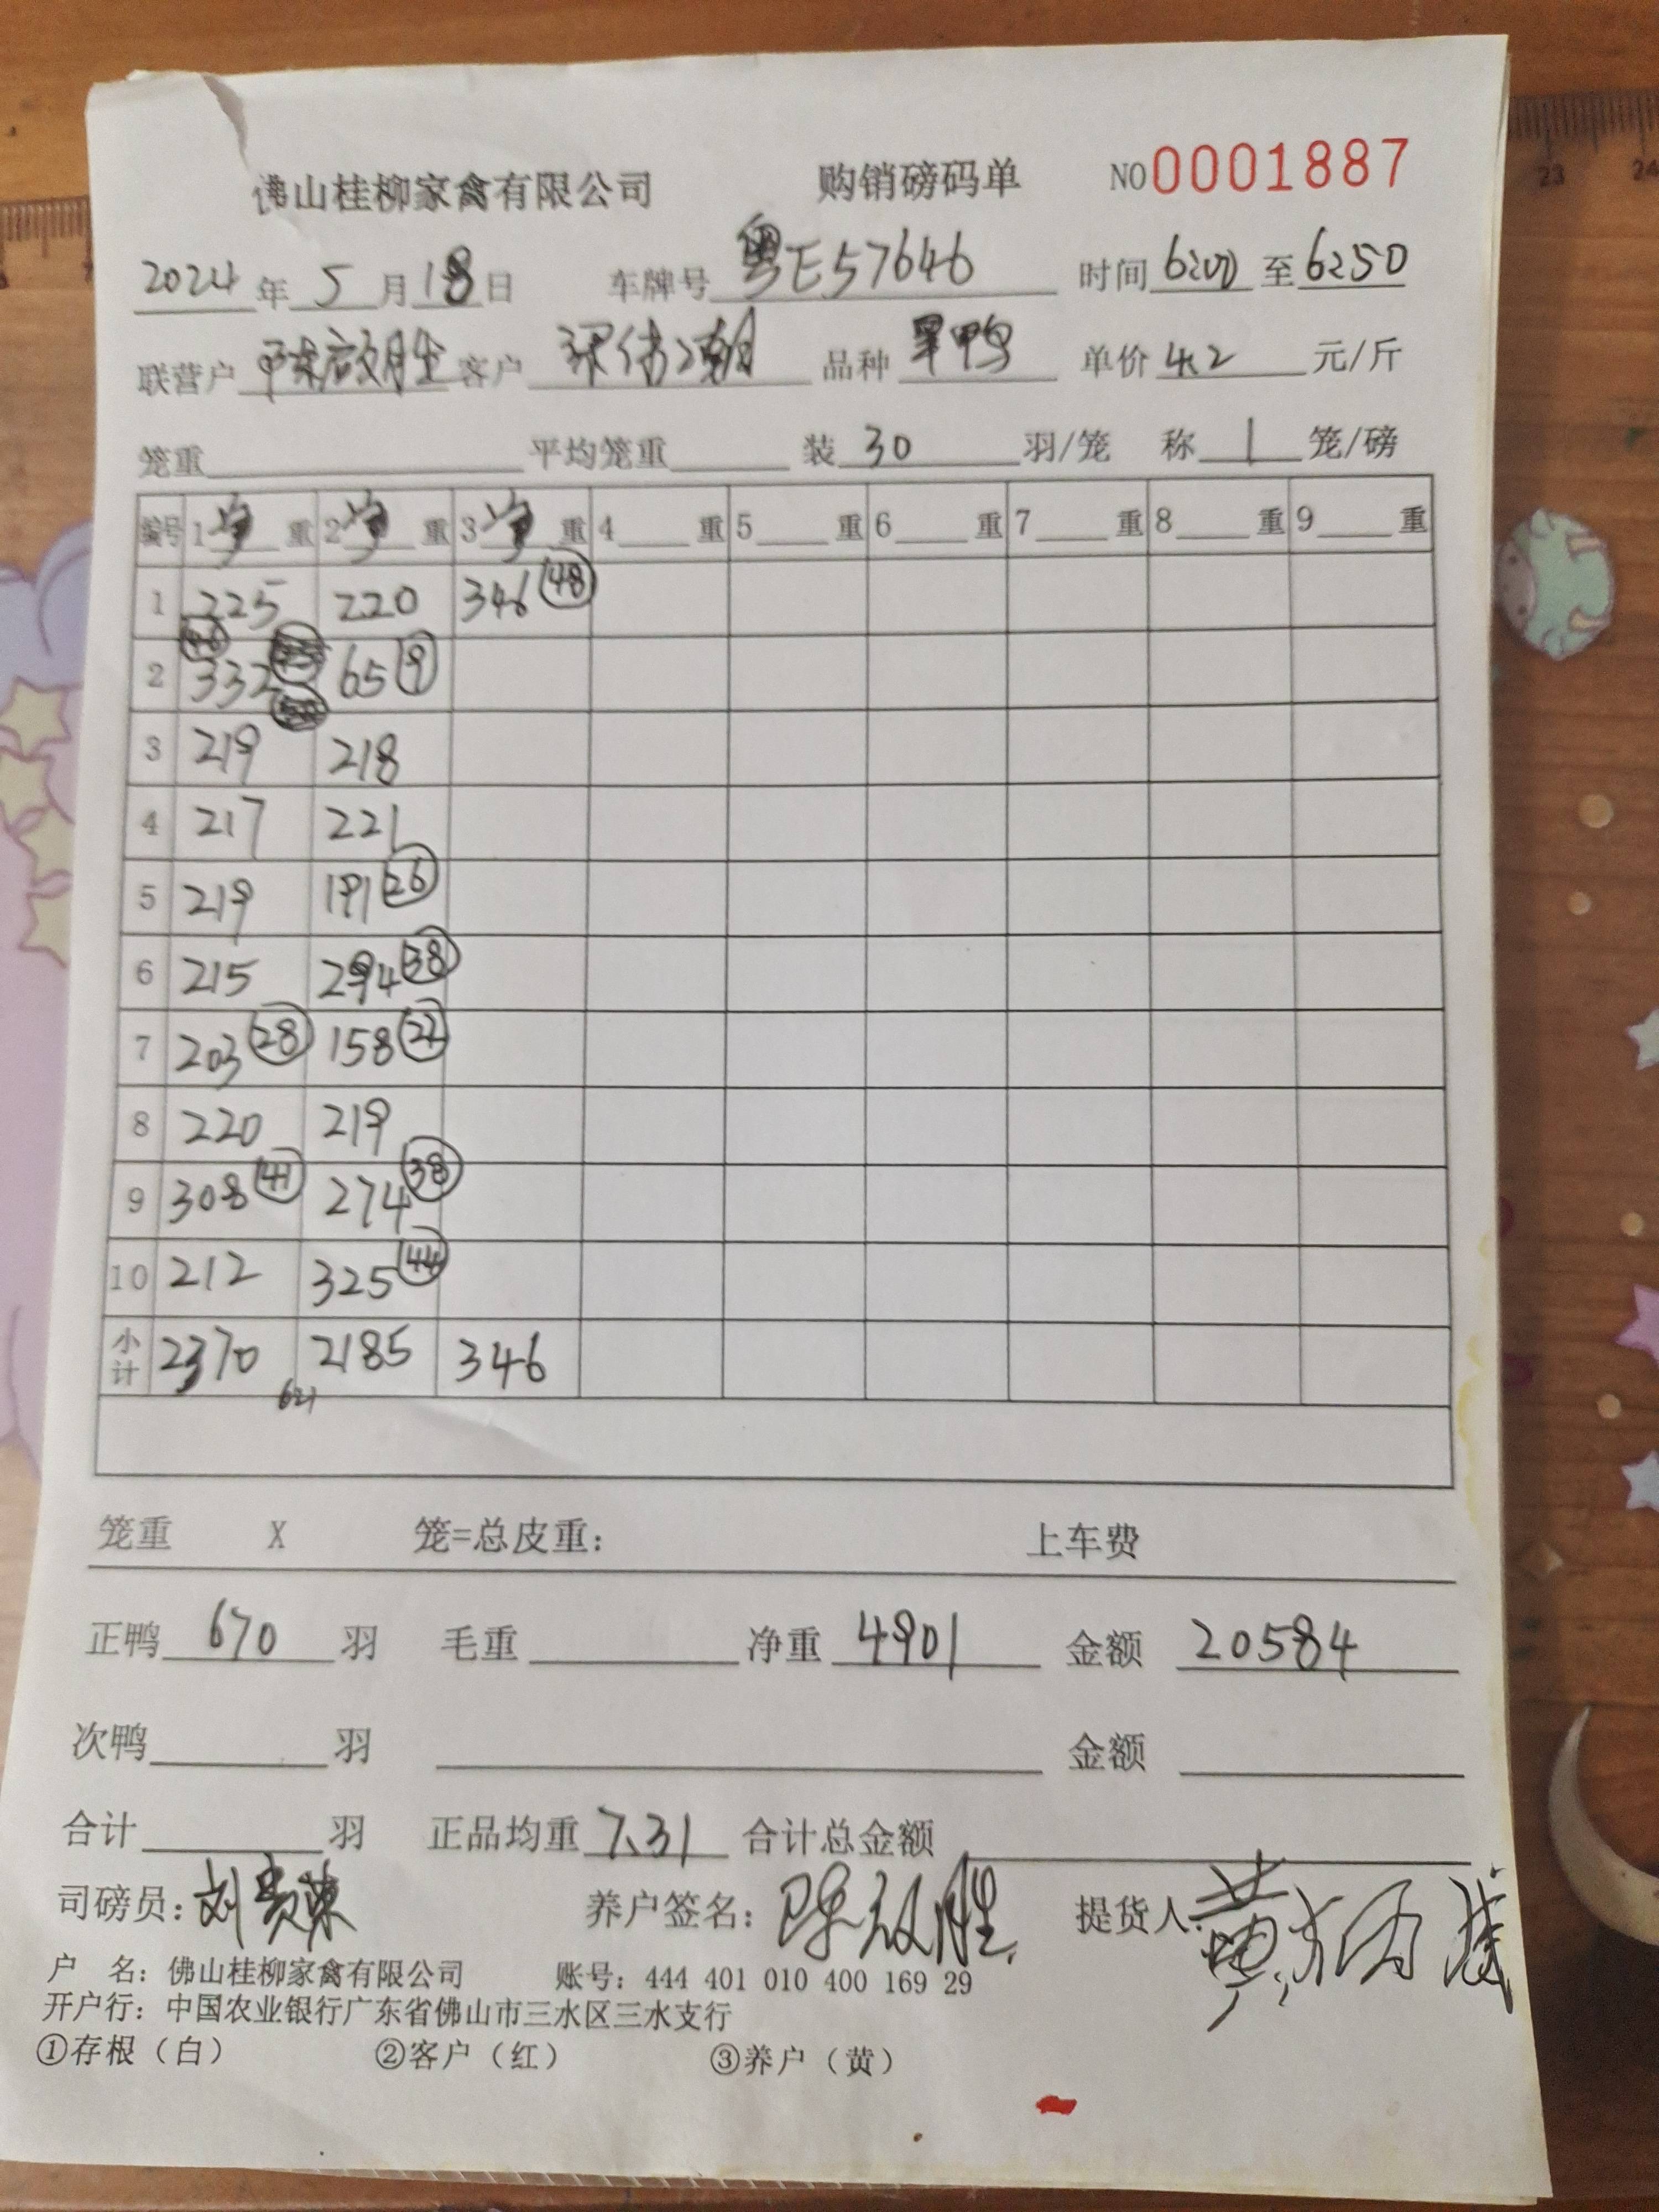 佛山桂柳家禽有限公司 购销磅码单 NO 0001887
2024年5月18日 车牌号 粤E57646 时间 6:00 至 6:50
联营户 陈啟胜 客户 品种 单价 4.2 元/斤
笼重 平均笼重 装 30 羽/笼 称 1 笼/磅
编号 1 净 重 2 净 重 3 净 重 4 重 5 重 6 重 7 重 8 重 9 重
1 225 220 346 48
2 46 332 65 9
3 219 218
4 217 221
5 219 191 26
6 215 294 38
7 203 28 158 22
8 220 219
9 308 41 274 38
10 212 325 44
小计 2370 2185 346
621
笼重 X 笼=总皮重: 上车费
正鸭 670 羽 毛重 净重 4901 金额 20584
次鸭 羽 金额
合计 羽 正品均重 7.31 合计总金额
司磅员: 养户签名: 陈啟胜 提货人:
户 名: 佛山桂柳家禽有限公司 账号: 444 401 010 400 169 29
开户行: 中国农业银行广东省佛山市三水区三水支行
①存根（白） ②客户（红） ③养户（黄）